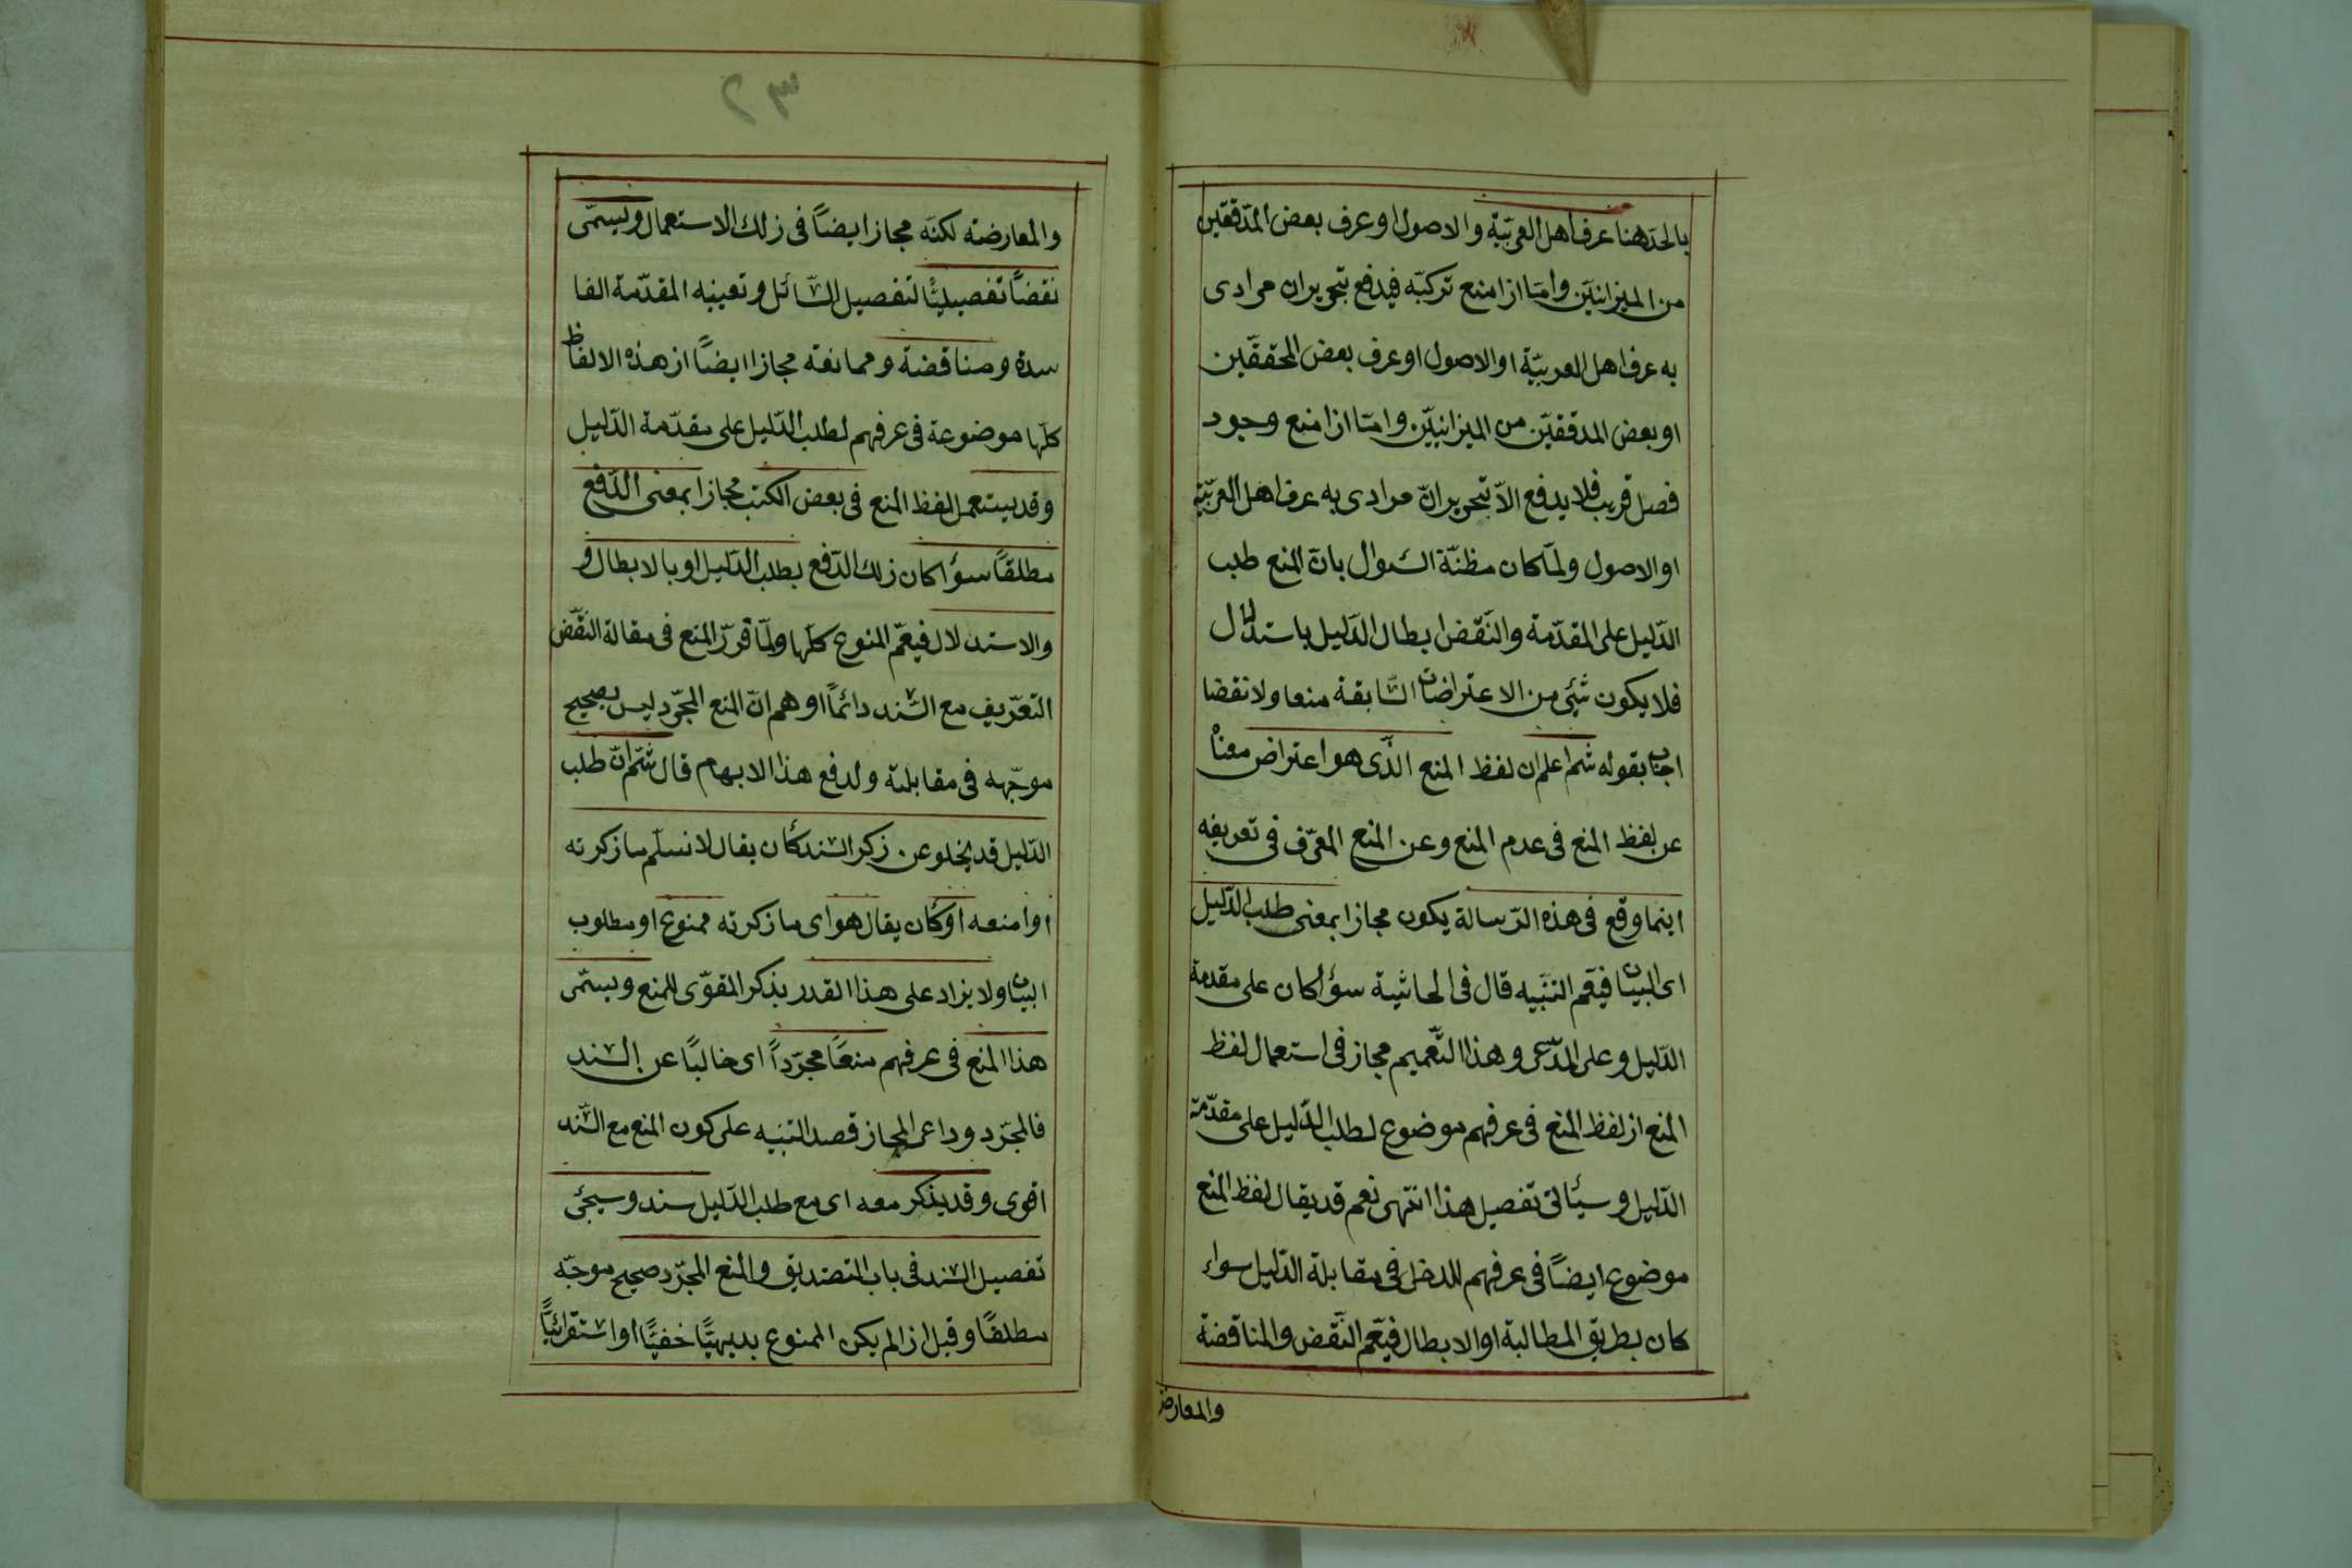 بالحد هنا عرف اهل العربيّة والاصول او عرف بعض المدققين
من الميزانيّين وامّا اذا منع تركبّه فيدفع بتحرير ان مرادى
به عرف اهل العربيّة او الاصول او عرف بعض المحققّين
او بعض المدققّين من الميزانيّين وامّا اذا منع وجود
فصل قريب فلا يدفع الّا بتحرير انّ مرادى به عرف اهل العربيّة
او الاصول ولمّا كان مظنّة السّوال بانّ المنع طلب
الدّليل على المقدّمة والنّقض ابطال الدّليل باستدلال
فلا يكون شئ من الاعتراضات السّابقة منعا ولا نقضا
اجاب بقوله ثم اعلم ان لفظ المنع الّذى هو اعتراض معناً
عن لفظ المنع فى عدم المنع وعن المنع المعرّف فى تعريفه
اينما وقع فى هذه الرّسالة يكون مجازا بمعنى طلب الدّليل
اى البيان فيعّم التنّبيه قال فى الحاشية سؤا كان على مقدمة
الدّليل وعلى المدّعى وهذا التّعميم مجاز فى استعمال لفظ
المنع اذ لفظ المنع فى عرفهم موضوع لطلب الدّليل على مقدّمة
الدّليل وسيأتى تفصيل هذا انتهى نعم قد يقال لفظ المنع
موضوع ايضاً فى عرفهم للدخل فى مقابلة الدّليل سواء
كان بطريق المطالبة او الابطال فيعّم النّقض والمناقضة
والمعارضة
٣٢
والمعارضته لكنّه مجاز ايضاً فى ذلك الاستعمال ويسمّى
نقضاً تفصيليّاً لتفصيل السّائل وتعينيه المقدّمة الفا
سدة ومناقضة وممانعة مجازا ايضاً اذ هذه الالفاظ
كلّها موضوعة فى عرفهم لطلب الدّليل على مقدّمة الدّليل
وقد يستعمل لفظ المنع فى بعض الكتب مجازا بمعنى الدّفع
مطلقاً سؤا كان ذلك الدّفع بطلب الدّليل او بالابطال و
والاستدلال فيعّم المنوع كلّها ولمّا قرّر المنع فى مقالة النقّض
التعّريف مع السّند دائماً اوهم انّ المنع المجّرد ليس بصحيح
موجّهه فى مقابلته ولدفع هذا الابهام قال ثمّ انّ طلب
الدّليل قد يخلو عن ذكر السّند كأن يقال لا نسلّم ما ذكرته
او امنعه او كأن يقال هو اى ما ذكرته ممنوع او مطلوب
البيان ولا يزاد على هذا القدر بذكر المقوّى للمنع ويسمّى
هذا المنع فى عرفهم منعاً مجرّداً اى خالياً عن السّند
فالمجّرد وداعى المجاز قصد التنبيه على كون المنع مع السّند
اقوى وقد يذكر معه اى مع طلب الدّليل سند وسيجئ
تفصيل السّند فى باب التصديق والمنع المجّرد صحيح موجّه
مطلقاً وقيل اذا لم يكن الممنوع بديهيّاً خفيّاً او استقرائيّاً